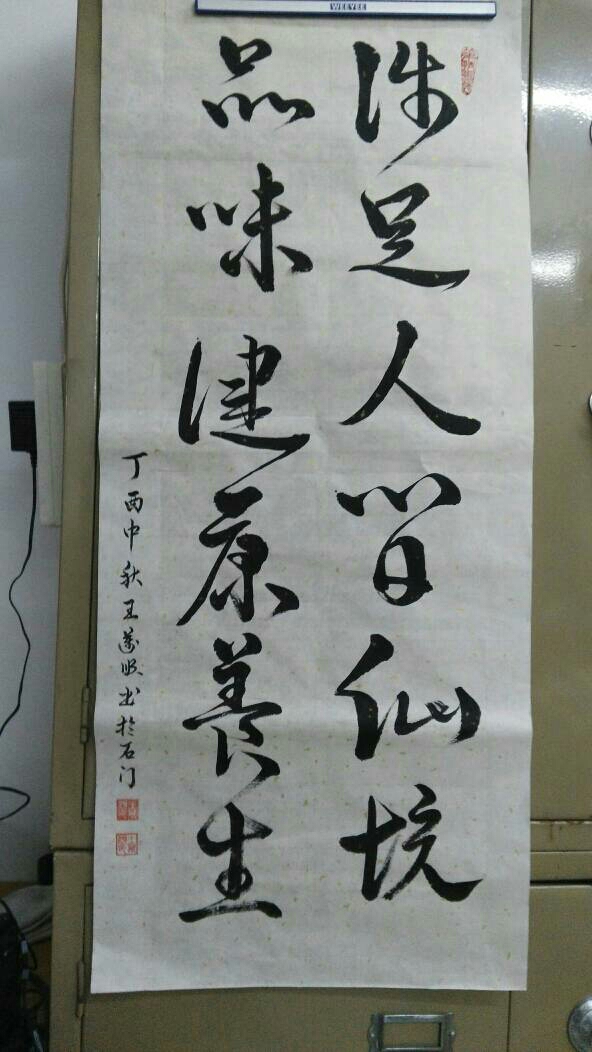 WEEYEE
涉足人间仙境
品味健康养生
丁酉中秋王 书於石门